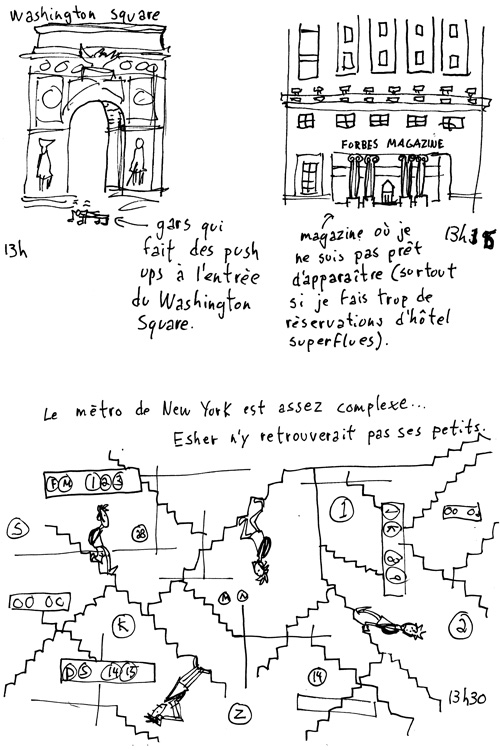 Washington Square
FORBES MAGAZINE
13h
gars qui
fait des push
ups à l'entrée
du Washington
Square.
magazine où je
ne suis pas prêt
d'apparaître (surtout
si je fais trop de
réservations d'hôtel
superflues).
13h15
Le métro de New York est assez complexe...
Esher n'y retrouverait pas ses petits.
F M 1 2 3
S
28
1
2
K
M N
D S 14 15
14
Z
13h30